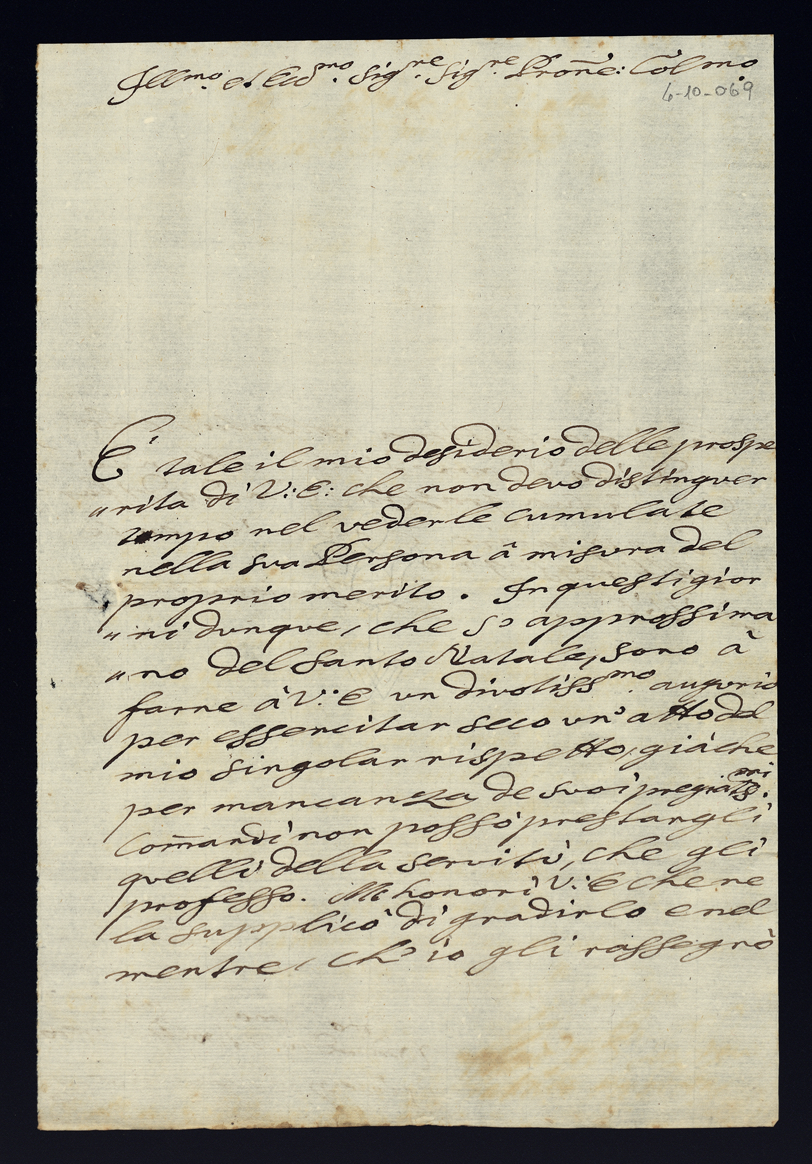 Illmo. et Eccmo. Sigre. Sigre. Proñe: Colmo.
6-10-069
E' tale il mio desiderio delle prospe
"rita di V: E: che non devo distinguer
tempo nel vederle cumulate
nella sua Persona â misura del
proprio merito. In questi gior
"ni dunque, che s' approssima
"no del Santo Natale, sono à
farne à V: E un divotissmo. augurio
per essercitar seco un' atto del
mio singolar rispetto, giàche
per mancanza de suoi pregiatmi.
Com̃andi non posso prestargli
quelli della servitù, che gli
professo. Mi honori V: E che ne
la supplicò di gradirlo e nel
mentre, ch' io gli rassegnò